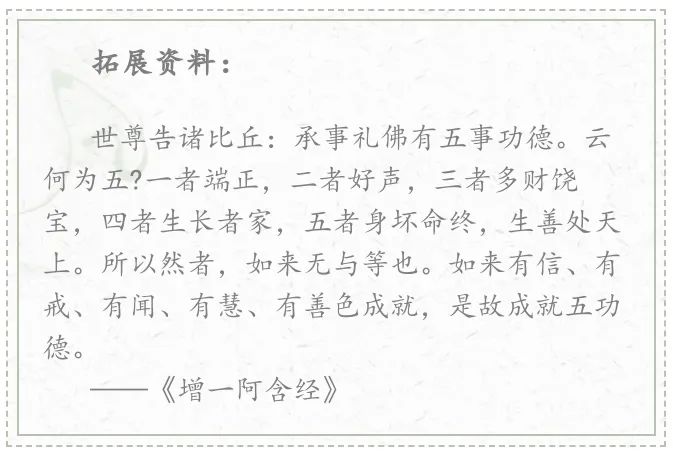 拓展资料：
世尊告诸比丘：承事礼佛有五事功德。云
何为五?一者端正，二者好声，三者多财饶
宝，四者生长者家，五者身坏命终，生善处天
上。所以然者，如来无与等也。如来有信、有
戒、有闻、有慧、有善色成就，是故成就五功
德。
——《增一阿含经》